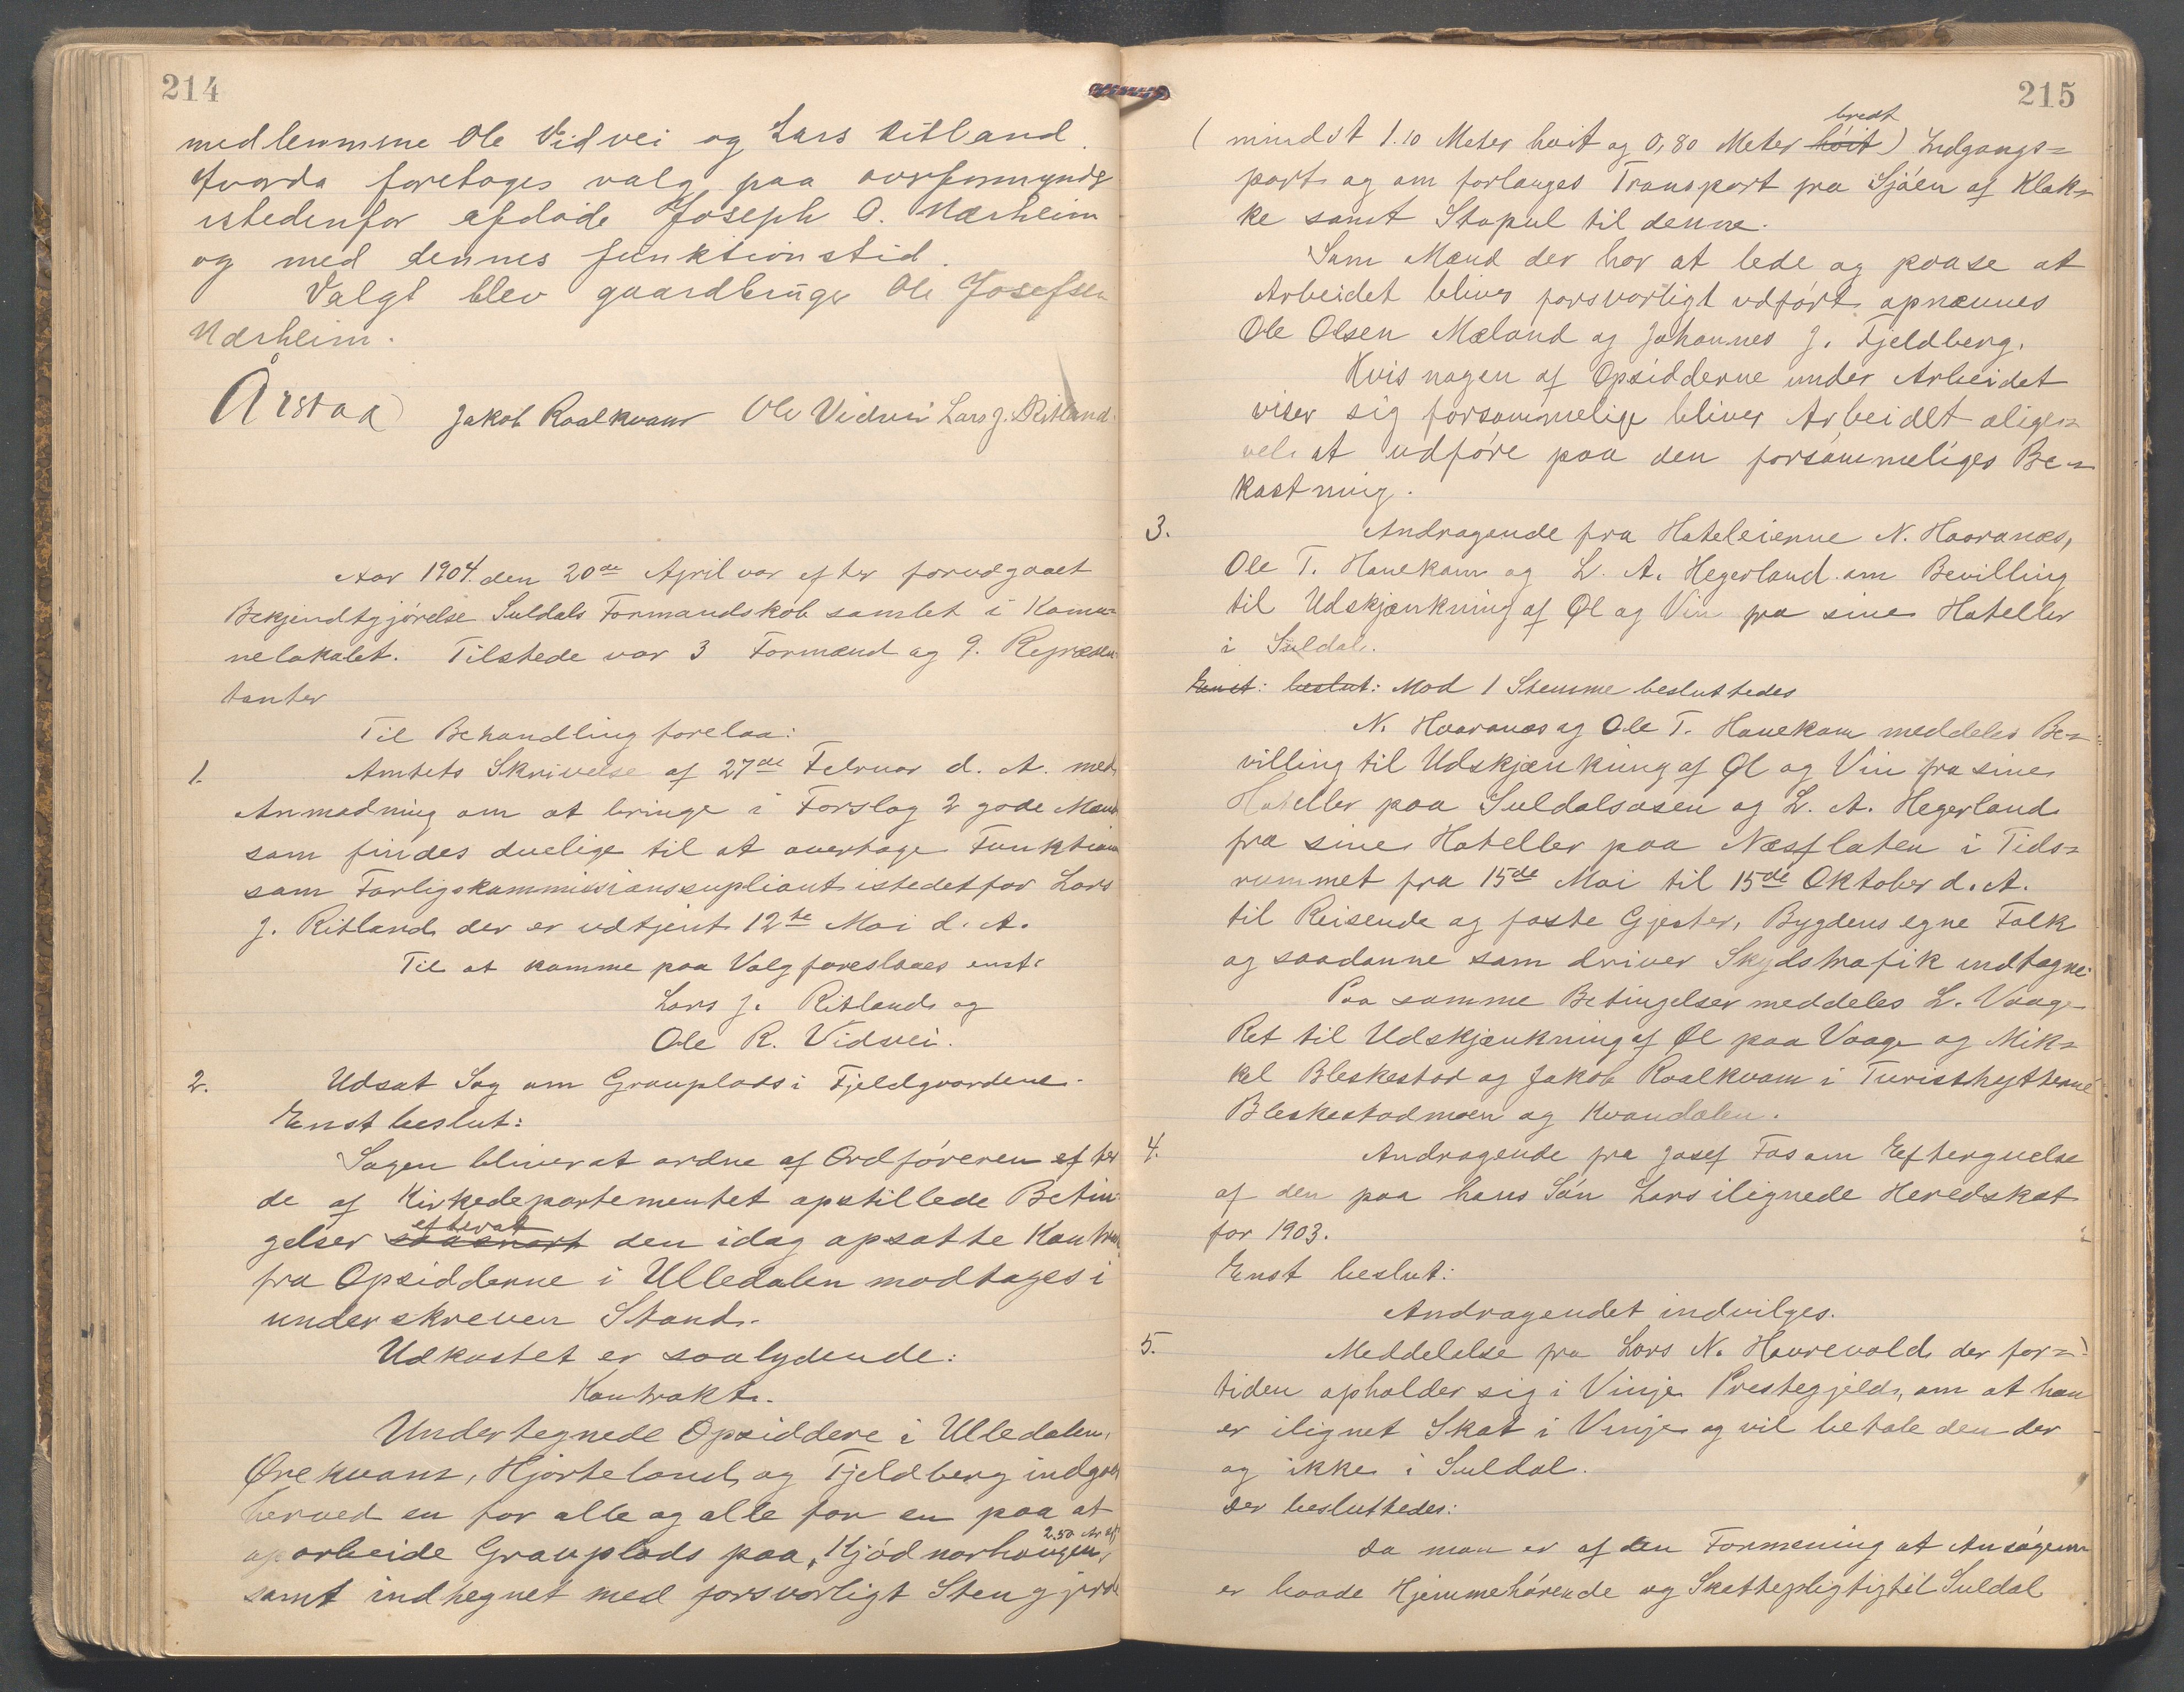 214
medlemmene Ole Vidvei og Lars Ritland.
foretages valg paa overformynder
istedenfor afdøde Joseph O. Nærheim
og med dennes funktionstid.
Valgt blev gaardbruger Ole Josefsen
Nærheim.
Årstad Jakob Roalkvam Ole Vidvei Lars J. Ritland.
Aar 1904 den 20de April var efter forudgaaet
Bekjendtgjørelse Suldals Formandskab samlet i Komu=
nelokalet. Tilstede var 3 Formænd og 9. Repræsen=
tanter
Til Behandling forelaa:
1. Amtets Skrivelse af 27de Februar d. A. med
Anmodning om at bringe i Forslag 2 gode Mænd
som findes duelige til at overtage Funktion
som Forligskommissionssupliant istedetfor Lars
J. Ritland der er udtjent 12te Mai d. A.
Til at komme paa Valg foreslaaes enst.
Lars J. Ritland og
Ole R. Vidvei.
2. Udsat Sag om Gravplads i Fjeldgaardene.
Enst beslut:
Sagen bliver at ordne af Ordføreren efter
de af Kirkedepartementet opstillede Betin=
efterat
gelser saasnart den idag opsatte Kontrakt
fra Opsidderne i Ulledalen modtages i
underskreven Stand.
Udkastet er saalydende:
Kontrakt.
Undertegnede Opsiddere i Ulledalen,
Ørekvam, Hjorteland og Fjeldberg indgaar
herved en for alle og alle for en paa at
2,50 Ar af
oparbeide Gravplads paa "Kjødnarhaugen",
samt indhegnet med forsvarligt Stengjerde
215
bredt
(mindst 1.10 Meter høit og 0,80 Meter høit) Indgangs=
port og om forlanges Transport fra Sjøen af Klok=
ke samt Stapul til denne.
Som Mænd der har at lede og paase at
Arbeidet bliver forsvarligt udført opnævnes
Ole Olsen Mæland og Johannes J. Fjeldberg.
Hvis nogen af Opsidderne under Arbeidet
viser sig forsømmelige bliver Arbeidet alige=
vel at udføre paa den forsømmeliges Be=
kostning.
3. Andragende fra Hoteleierne N. Hoaranæs,
Ole T. Hanekam og L. A. Hegerland om Bevilling
til Udskjænkning af Øl og Vin fra sine Hoteller
i Suldal.
Enst: beslut: Mod 1 Stemme besluttedes
N. Hoaranæs og Ole T. Hanekam meddeles Be=
villing til Udskjænkning af Øl og Vin fra sine
Hoteller paa Suldalsosen og L. A. Hegerland
fra sine Hoteller paa Næsflaten i Tids=
rummet fra 15de Mai til 15de Oktober d. A.
til Reisende og faste Gjester, Bygdens egne Folk
og saadanne som driver Skydstrafik undtagne.
Paa samme Betingelser meddeles L. Vaage
Ret til Udskjænkning af Øl paa Vaage og Mik=
kel Bleskestad og Jakob Roalkvam i Turisthytterne
Bleskestadmoen og Kvandalen.
4. Andragende fra Josef Fos om Eftergivelse
af den paa hans Søn Lars ilignede Heredskat
for 1903.
Enst beslut:
Andragendet indvilges.
5. Meddelelse fra Lars N. Haurevold der for=
tiden opholder sig i Vinje Prestegjeld, om at han
er ilignet Skat i Vinje og vil betale den der
og ikke i Suldal.
Der besluttedes:
Da man er af den Formening at Ansøgeren
er baade Hjemmehørende og Skattepligtig til Suldal